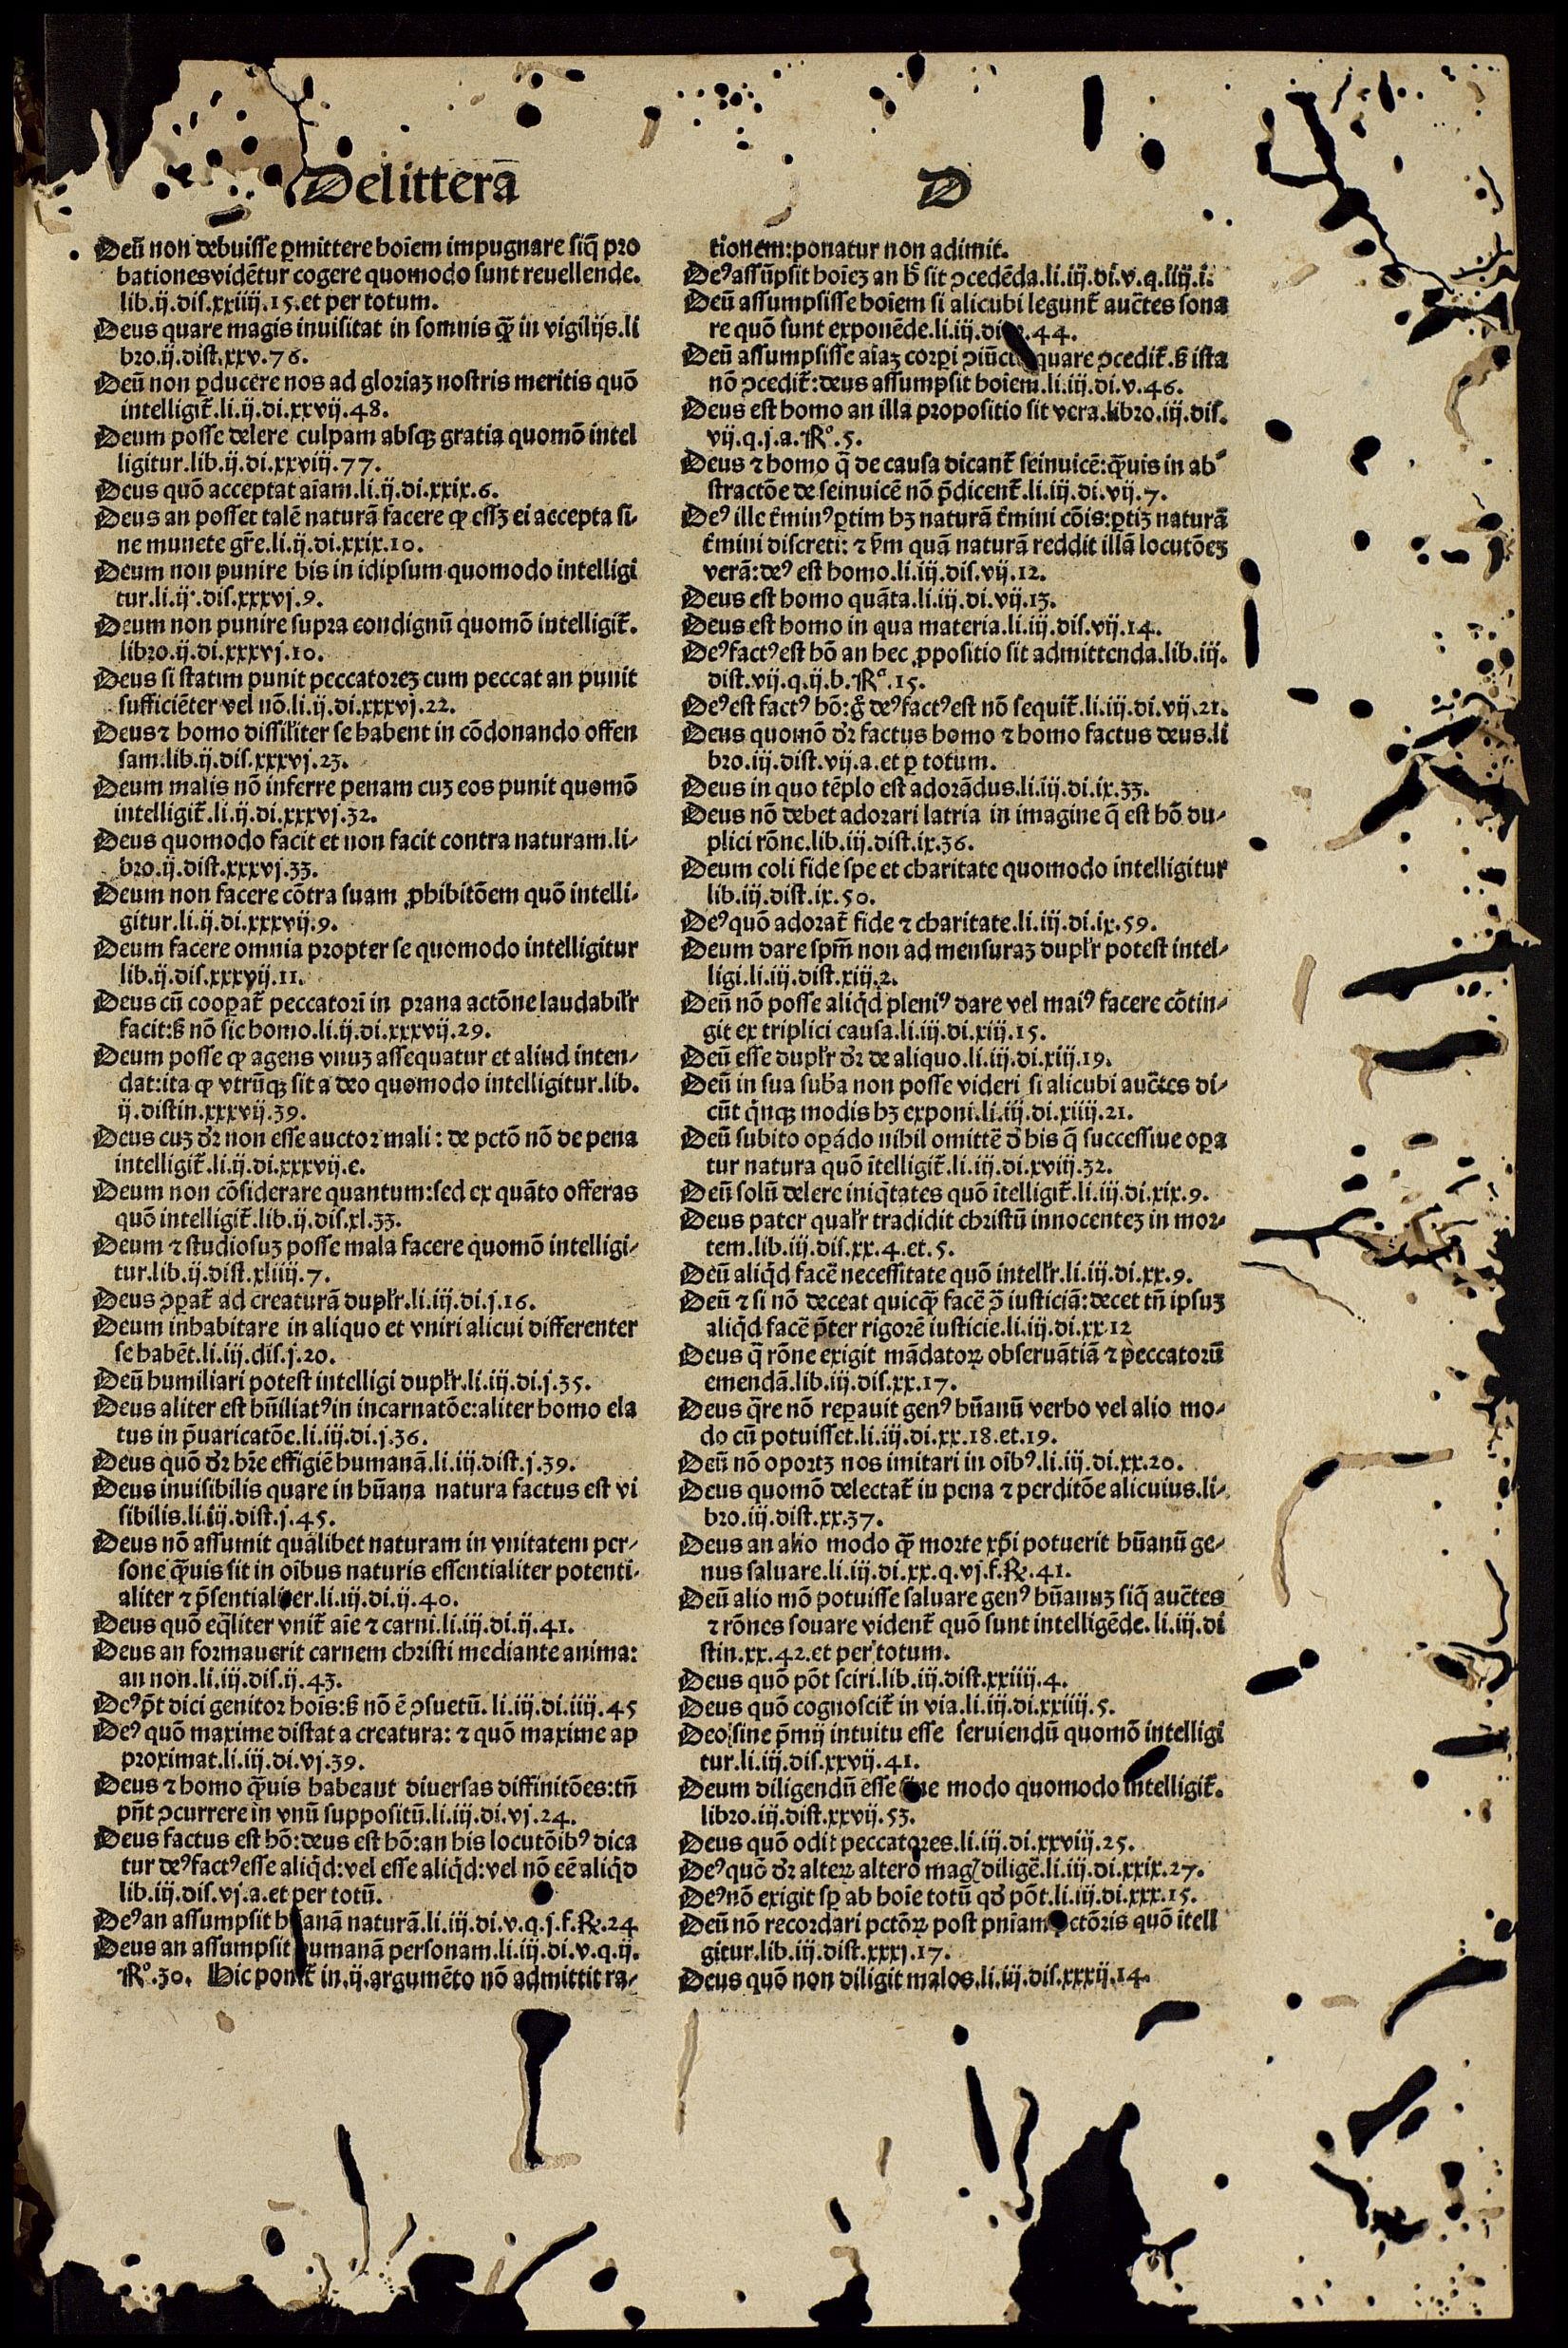 Delitterā
D
Deū non debuisse ꝑmittere hoīem impugnare siq̄ pro
bationes vidētur cogere quomodo sunt reuellende.
lib.ij.dis.xxiiij.15.et per totum.
Deus quare magis inuisitat in somnis q̄ꝫ in vigilijs.li
bro.ij.dist.xxv.76.
Deū non ꝑducere nos ad gloriaꝫ nostris meritis quō
intelligit̄.li.ij.di.xxvij.48.
Deum posse delere culpam absqꝫ gratia quomō intel
ligitur.lib.ij.di.xxviij.77.
Deus quō acceptat aīam.li.ij.di.xxix.6.
Deus an posset talē naturā facere ꝙ essꝫ ei accepta si-
ne munete gr̄e.li.ij.di.xxix.10.
Deum non punire bis in idipsum quomodo intelligi
tur.li.ij.dis.xxxvj.9.
Deum non punire supra condignū quomō intelligit̄.
libro.ij.di.xxxvj.10.
Deus si statim punit peccatoreꝫ cum peccat an punit
sufficiēter vel nō.li.ij.di.xxxvj.22.
Deus ⁊ homo dissiliter se habent in cōdonando offen
sam.lib.ij.dis.xxxvj.23.
Deum malis nō inferre penam cuꝫ eos punit quomō
intelligit̄.li.ij.di.xxxvj.32.
Deus quomodo facit et non facit contra naturam.li-
bro.ij.dist.xxxvj.33.
Deum non facere cōtra suam ꝓhibitōem quō intelli-
gitur.li.ij.di.xxxvij.9.
Deum facere omnia propter se quomodo intelligitur
lib.ij.dis.xxxvij.11.
Deus cū cooꝑat̄ peccatori in prana actōne laudabilr̄
facit:sꝫ nō sic homo.li.ij.di.xxxvij.29.
Deum posse ꝙ agens vnuꝫ assequatur et aliud inten-
dat:ita ꝙ vtrūqꝫ sit a deo quomodo intelligitur.lib.
ij.distin.xxxvij.39.
Deus cuꝫ dr̄ non esse auctor mali: de pctō nō de pena
intelligit̄.li.ij.di.xxxvij.e.
Deum non cōsiderare quantum:sed ex quāto offeras
quō intelligit̄.lib.ij.dis.xl.33.
Deum ⁊ studiosuꝫ posse mala facere quomō intelligi-
tur.lib.ij.dist.xliiij.7.
Deus ꝯꝑat̄ ad creaturā duplr̄.li.iij.di.j.16.
Deum inhabitare in aliquo et vniri alicui differenter
se habēt.li.iij.dis.j.20.
Deū humiliari potest intelligi duplr̄.li.iij.di.j.35.
Deus aliter est hūiliatꝰ in incarnatōe:aliter homo ela
tus in p̄uaricatōe.li.iij.di.j.36.
Deus quō dr̄ hr̄e effigiē humanā.li.iij.dist.j.39.
Deus inuisibilis quare in hūana natura factus est vi
sibilis.li.iij.dist.j.45.
Deus nō assumit quālibet naturam in vnitatem per-
sone q̄ꝫuis sit in oībus naturis essentialiter potenti-
aliter ⁊ p̄sentialiter.li.iij.di.ij.40.
Deus quō eq̄liter vnit̄ aīe ⁊ carni.li.iij.di.ij.41.
Deus an formauerit carnem christi mediante anima:
an non.li.iij.dis.ij.43.
Deꝰ p̄t dici genitor hoīs:sꝫ nō ē ꝯsuetū. li.iij.di.iiij.45
Deꝰ quō maxime distat a creatura: ⁊ quō maxime ap
proximat.li.iij.di.vj.39.
Deus ⁊ homo q̄ꝫuis habeant diuersas diffinitōes:tn̄
pn̄t ꝯcurrere in vnū suppositū.li.iij.di.vj.24.
Deus factus est hō:deus est hō:an his locutōibꝰ dica
tur deꝰ factꝰ esse aliq̄d:vel esse aliq̄d:vel nō eē aliq̄d
lib.iij.dis.vj.a.et per totū.
Deꝰ an assumpsit h anā naturā.li.iij.di.v.q.j.f.℞.24
Deus an assumpsit umanā personam.li.iij.di.v.q.ij.
℞º.30. Hic ponit̄ in.ij.argumēto nō admittit ra-
tionem:ponatur non adimit.
Deꝰ assūpsit hoīeꝫ an b̄ sit ꝯcedēda.li.iij.di.v.q.iiij.i.
Deū assumpsisse hoīem si alicubi legunt̄ auct̄es sona
re quō sunt exponēde.li.iij.di .44.
Deū assumpsisse aīaꝫ corpi ꝯiūct quare ꝯcedit̄.sꝫ ista
nō ꝯcedit̄:deus assumpsit hoīem.li.iij.di.v.46.
Deus est homo an illa propositio sit vera.libro.iij.dis.
vij.q.j.a.℞º.5.
Deus ⁊ homo q̄ de causa dicant̄ seinuicē:q̄ꝫuis in ab
stractōe de seinuicē nō p̄dicent̄.li.iij.di.vij.7.
Deꝰ ille t̄minꝰ ꝑtim hꝫ naturā t̄mini cōis:ꝑtiꝫ naturā
t̄mini discreti: ⁊ ẜm quā naturā reddit illā locutōeꝫ
verā:deꝰ est homo.li.iij.dis.vij.12.
Deus est homo quāta.li.iij.di.vij.13.
Deus est homo in qua materia.li.iij.dis.vij.14.
Deꝰ factꝰ est hō an hec ꝓpositio sit admittenda.lib.iij.
dist.vij.q.ij.b.℞ª.15.
Deꝰ est factꝰ hō:g̊ deꝰ factꝰ est nō sequit̄.li.iij.di.vij.21.
Deus quomō dr̄ factus homo ⁊ homo factus deus.li
bro.iij.dist.vij.a.et ꝑ totum.
Deus in quo tēplo est adorādus.li.iij.di.ix.33.
Deus nō debet adorari latria in imagine q̄ est hō du-
plici rōne.lib.iij.dist.ix.36.
Deum coli fide spe et charitate quomodo intelligitur
lib.iij.dist.ix.50.
Deꝰ quō adorat̄ fide ⁊ charitate.li.iij.di.ix.59.
Deum dare spm̄ non ad mensuraꝫ duplr̄ potest intel-
ligi.li.iij.dist.xiij.2.
Deū nō posse aliq̄d pleniꝰ dare vel maiꝰ facere cōtin-
git ex triplici causa.li.iij.di.xiij.15.
Deū esse duplr̄ dr̄ de aliquo.li.iij.di.xiij.19.
Deū in sua sub̄a non posse videri si alicubi auct̄es di-
cūt q̄nqꝫ modis hꝫ exponi.li.iij.di.xiiij.21.
Deū subito oꝑādo nihil omittē d̄ his q̄ successiue oꝑa
tur natura quō ītelligit̄.li.iij.di.xviij.32.
Deū solū delere iniq̄tates quō ītelligit̄.li.iij.di.xix.9.
Deus pater qualr̄ tradidit christū innocenteꝫ in mor-
tem.lib.iij.dis.xx.4.et.5.
Deū aliq̄d facē necessitate quō intellr̄.li.iij.di.xx.9.
Deū ⁊ si nō deceat quicq̄ꝫ facē ꝯ̄ iusticiā:decet tn̄ ipsuꝫ
aliq̄d facē p̄ter rigorē iusticie.li.iij.di.xx.12
Deus q̄ rōne exigit mādatoꝝ obseruātiā ⁊ peccatorū
emendā.lib.iij.dis.xx.17.
Deus q̄re nō reꝑauit genꝰ hūanū verbo vel alio mo-
do cū potuisset.li.iij.di.xx.18.et.19.
Deū nō oportꝫ nos imitari in oībꝰ.li.iij.di.xx.20.
Deus quomō delectat̄ in pena ⁊ perditōe alicuius.li-
bro.iij.dist.xx.37.
Deus an alio modo q̄ꝫ morte xp̄i potuerit hūanū ge-
nus saluare.li.iij.di.xx.q.vj.f.℞.41.
Deū alio mō potuisse saluare genꝰ hūanuꝫ siq̄ auct̄es
⁊ rōnes souare vident̄ quō sunt intelligēde.li.iij.di
stin.xx.42.et per totum.
Deus quō pōt sciri.lib.iij.dist.xxiiij.4.
Deus quō cognoscit̄ in via.li.iij.di.xxiiij.5.
Deo sine p̄mij intuitu esse seruiendū quomō intelligi
tur.li.iij.dis.xxvij.41.
Deum diligendū esse sine modo quomodo intelligit̄.
libro.iij.dist.xxvij.53.
Deus quō odit peccatores.li.iij.di.xxviij.25.
Deꝰ quō dr̄ alteꝝ altero magꝭ diligē.li.iij.di.xxix.27.
Deꝰ nō exigit sꝑ ab hoīe totū qd̄ pōt.li.iij.di.xxx.15.
Deū nō recordari pctōꝝ post pniam ctōris quō ītell
gitur.lib.iij.dist.xxxj.17.
Deus quō non diligit malos.li.iij.dis.xxxij.14.